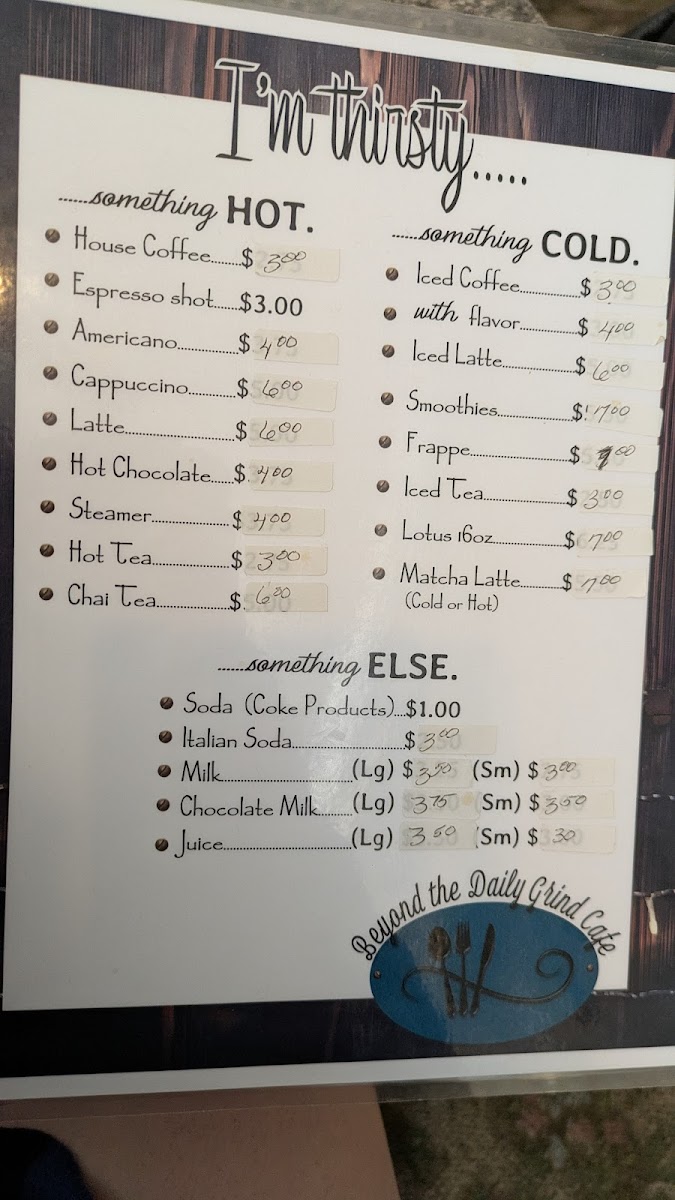 I'm thirsty.....
......something HOT.
House Coffee.......$ 3.00
Espresso shot.....$3.00
Americano...............$ 4.00
Cappuccino............$ 6.00
Latte......................$ 6.00
Hot Chocolate.....$ 4.00
Steamer................$ 4.00
Hot Tea................$ 3.00
Chai Tea...............$ 6.00
......something COLD.
Iced Coffee.............$ 3.00
with flavor.............$ 4.00
Iced Latte................$ 6.00
Smoothies................$ 7.00
Frappe.....................$
Iced Tea..................$ 3.00
Lotus 16oz...............$ 7.00
Matcha Latte..........$ 7.00
(Cold or Hot)
......something ELSE.
Soda (Coke Products)...$1.00
Italian Soda.........................$ 3.00
Milk.............................(Lg) $ 3.50 (Sm) $ 3.00
Chocolate Milk........(Lg) $ 3.75 (Sm) $ 3.50
Juice............................(Lg) 3.50 (Sm) $ 3.30
Beyond the Daily Grind Cafe